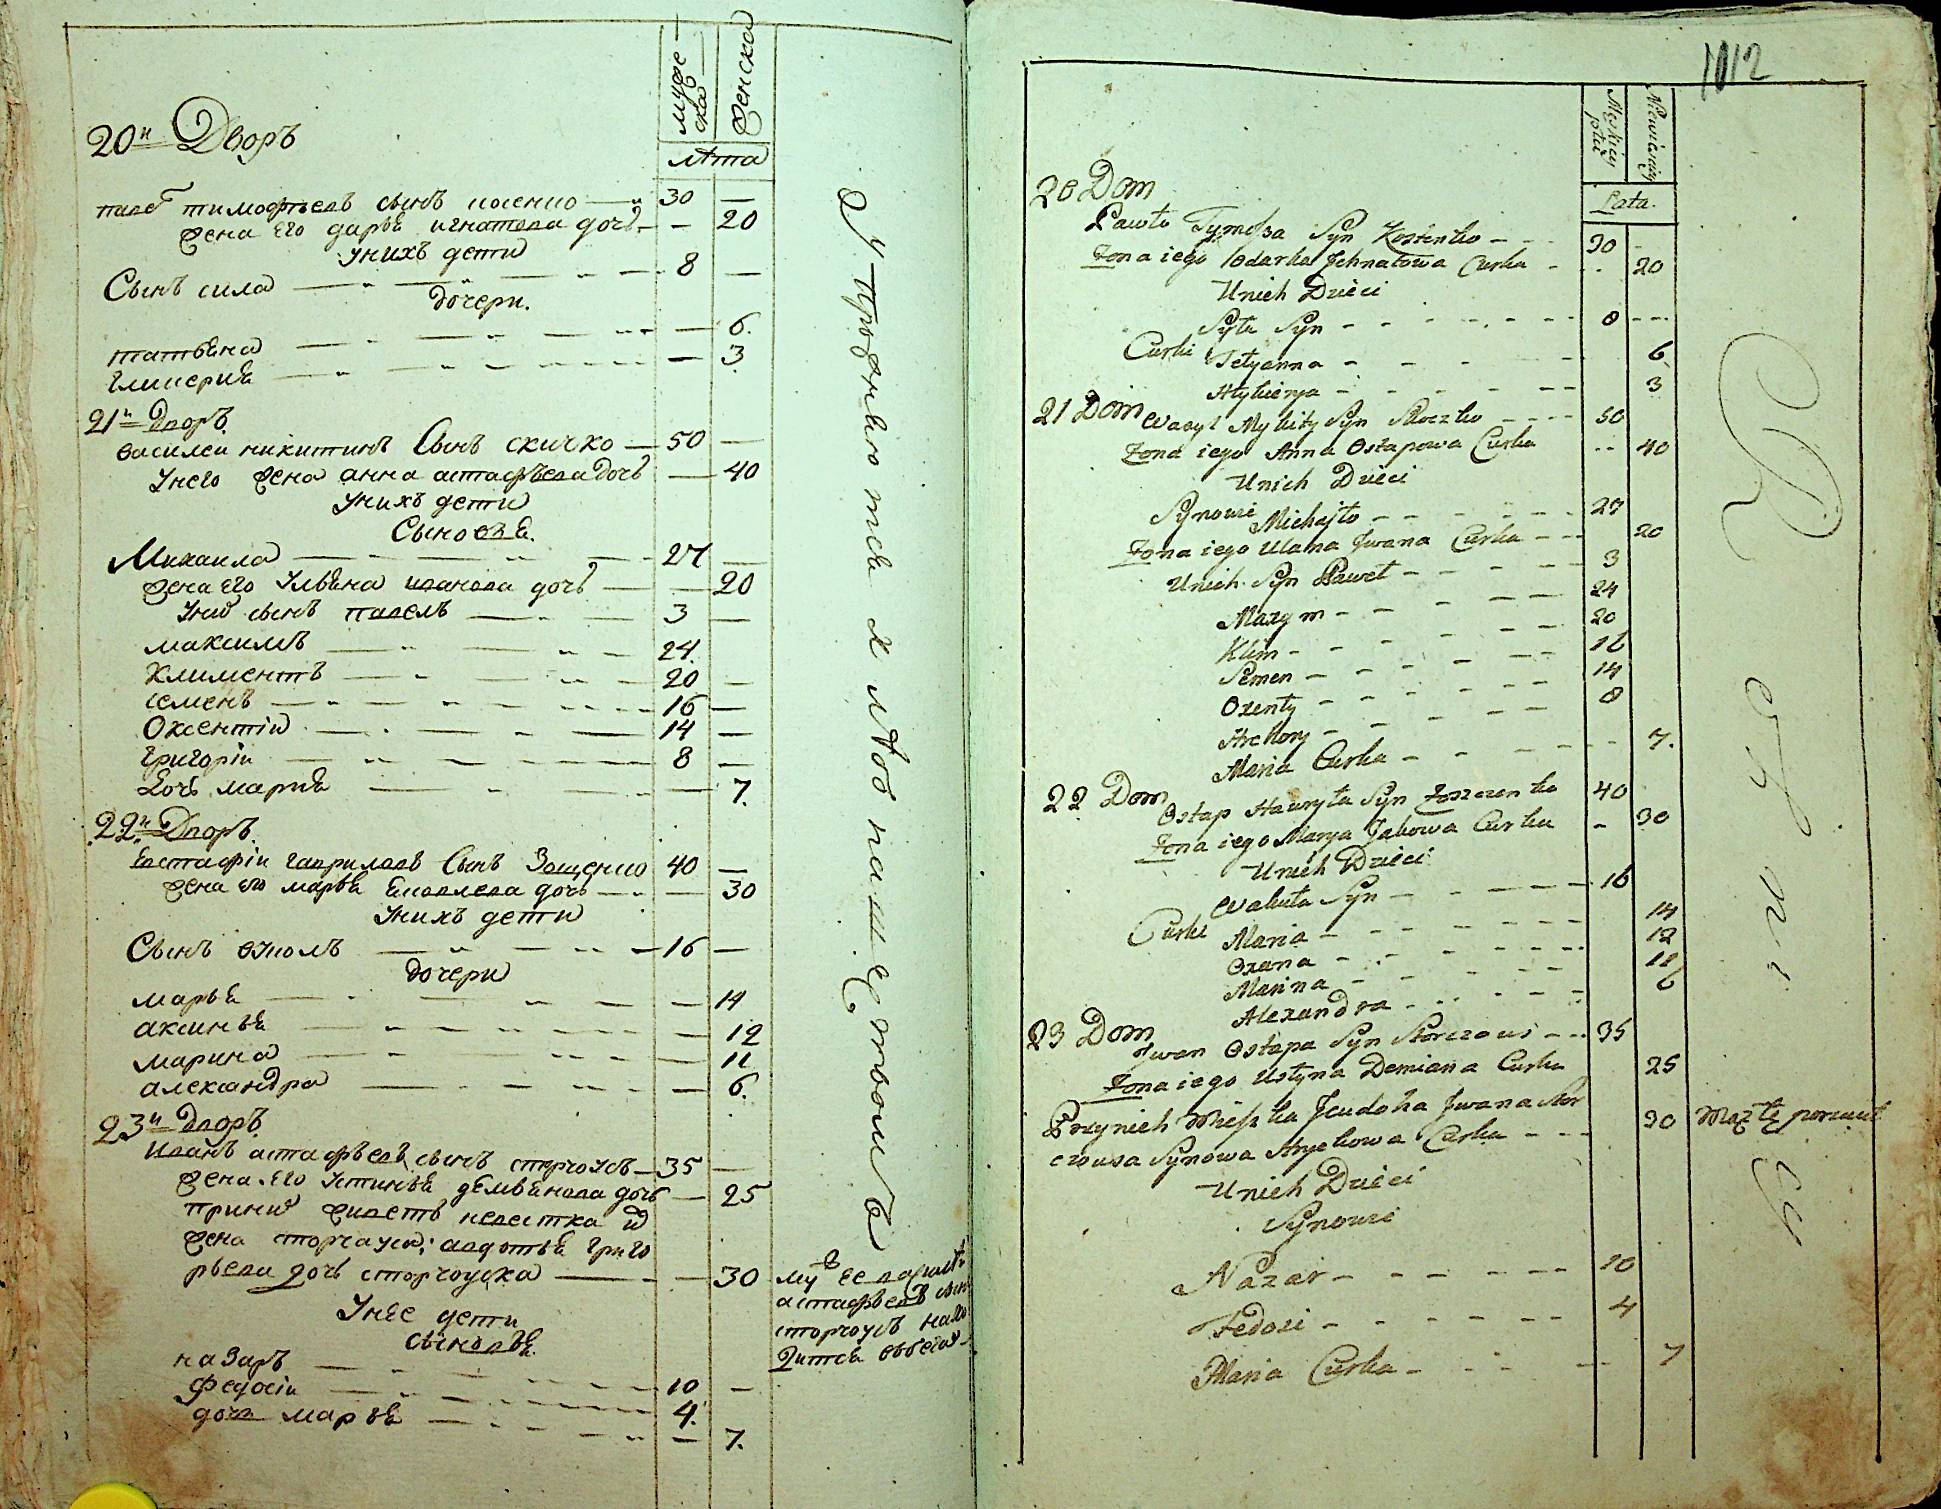 муже
ска
женска
лѣта
20й Дворъ
павел тимофѣевъ сынъ косенко 30 —
жена его дарья игнатова дочь — 20
у нихъ дети
Сынъ сила 8 —
дочери.
татьяна — 6.
гликерия — 3
21й Дворъ.
василеи никитинъ Сынъ скичко 50 —
у него жена анна астафьева дочь — 40
у нихъ дети
Сыновья.
Михаила 27 —
жена его ульяна иванова дочь — 20
у них сынъ павелъ 3 —
максимъ 24.
климентъ 20 —
семенъ 16 —
Оксентіи 14 —
григоріи 8 —
дочь мария — 7.
22й Дворъ
Евстафіи гавриловъ Сынъ Зощенко 40 —
жена его марья яковлева дочь — 30
у нихъ дети
Сынъ вуколъ 16 —
дочери
марья — 14
аксинья — 12
марина — 11
александра — 6.
23й Дворъ.
Иванъ астафьевъ сынъ сторчоусъ 35 —
жена его устинья демьянова дочь — 25
при них живетъ невестка
жена сторчауса: авдотья григо
рьева дочь сторчоуска — 30
му ее
астафьевъ сынъ
сторчоусъ нахо
дится в бегах
У нее дети
сыновья.
назаръ 10 —
федосіи 4.
дочь марья — 7.
1012
Męskiey
płci
Niewieściey
Lata.
20 Dom
Pawło Tymosza Syn Kostenko 30
Żona iego Odarka Jehnatowa Curka 20
U nich Dzieci
Syła Syn 8
Curki Tetyanna 6
Hłykierya 3
21 Dom Wasyl Mykity Syn Skoczko 50
Żona iego Anna Ostapowa Curka 40
U nich Dzieci
Synowie Michajło 27
Żona iego Ulana Jwana Curka 20
U nich Syn Paweł 3
Maxym 24
Klim 20
Semen 16
Oxenty 14
Hrehory 8
Maria Curka 7.
22 Dom
Ostap Hawryła Syn Zoszczenko 40
Żona iego Marya Jakowa Curka 30
U nich Dzieci
Wakuła Syn 16
Curki Maria 14
Oxana 12
Marina 11
Alexandra 6
23 Dom
Jwan Ostapa Syn Storczous 35
Żona iego Ustyna Demiana Curka 25
Przy nich Jeudoha Jwana Stor
czousa Synowa Curka 30
Mąż tę porzucił
U nich Dzieci
Synowie
Nazar 10
Fedosi 4
Maria Curka 7